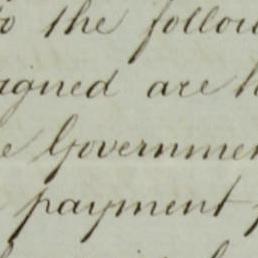 to the follow
igned are h
e Governmen
payment f